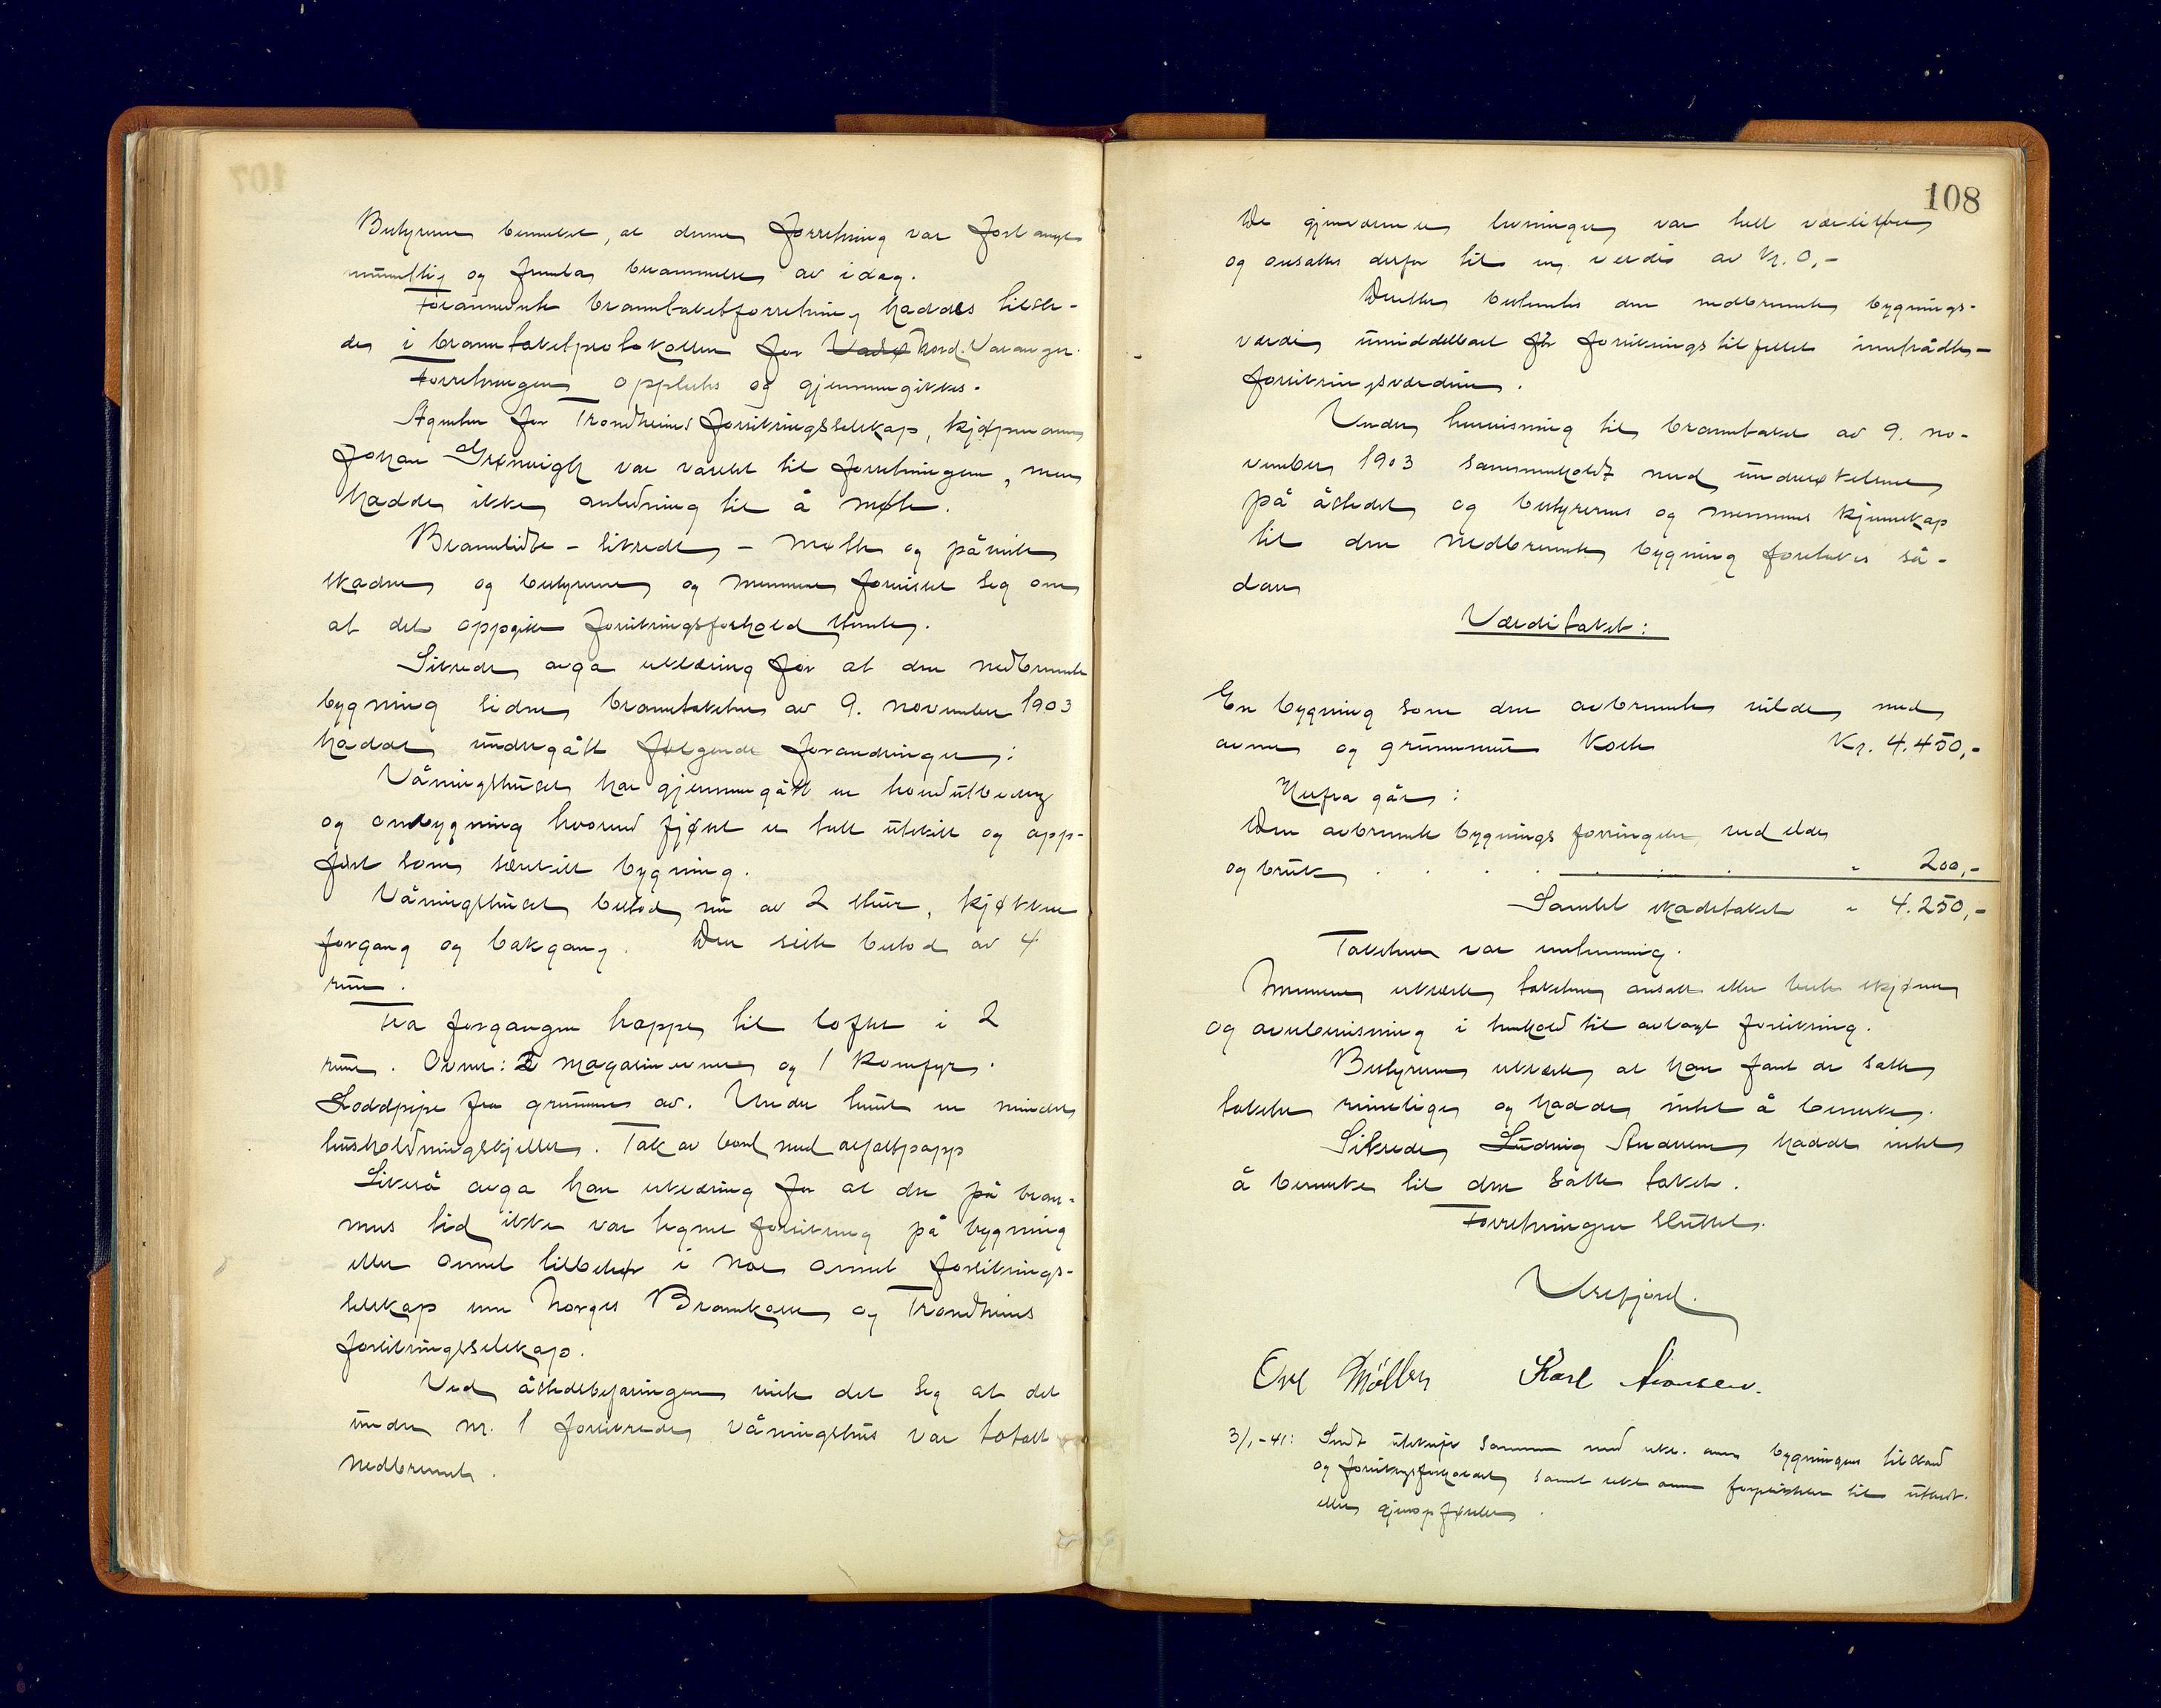 107
Bestyreren bemerket, at denne forretning var forlangt
muntlig og funnla berammelse av idag.
Forannevnte branntakstforretning haddes tilste-
de i branntakstprotokollen for Vadsø Nord-Varanger.
Forretningen opplestes og gjennemgikkes.
Agenten for Trondhjems forsikringsselskap, kjøpmann
Johan Grønvigh var varslet til forretningen, men
hadde ikke anledning til å møte.
Brannlidte - sikrede - møtte og påviste
skaden og bestyreren og mennene forvisset seg om
at det oppgitte forsikringsforhold stemte.
Sikrede avga erklæring for at den nedbrente
bygning siden branntaksten av 9. november 1903
hadde undergått følgende forandringer:
Våningshuset har gjennemgått en hovedutbedring
og ombygning hvorved fjøset er helt utskilt og opp-
ført som særskilt bygning.
Våningshuset bestod nu av 2 stuer, kjøkken
forgang og bakgang. Den siste bestod av 4
rum.
Fra forgangen trapp til loftet i 2
rum. Ovner: 2 magasinovner og 1 komfyr.
Loddpipe fra grunnen av. Under huset en mindre
husholdningskjeller. Tak av bord med asfaltpapp
Likeså avga han erklæring for at den på bran-
nens tid ikke var tegnet forsikring på bygning
eller annet tilbehør i noe annet forsikrings-
selskap enn Norges Brannkasse og Trondhjems
forsikringsselskap.
Ved åstedsbefaringen viste det seg at det
under nr. 1 forsikrede våningshus var totalt
nedbrent.
108
De gjenværende levninger var helt verdiløse
og ansattes derfor til en verdi av kr. 0,-
Deretter bestemtes den nedbrente bygnings-
verdi umiddelbart før forsikringstilfellet inntrådte -
forsikringsverdien.
Under henvisning til branntakst av 9. no-
vember 1903 sammenholdt med undersøkelsene
på åstedet og bestyrerens og mennenes kjennskap
til den nedbrente bygning foretokes så-
dan
Verditakst:
En bygning som den avbrente vilde med
ovner og grunnmur koste Kr. 4.450,-
Herfra går:
Den avbrente bygnings forringelse ved elde
og bruk . . . . . . . " 200,-
Samlet skadetakst " 4.250,-
Taksten var enstemmig.
Mennene erklærte taksten ansatt etter beste skjønn
og overbevisning i henhold til avlagt forsikring.
Bestyreren erklærte at han fant de satte
takster rimelige og hadde intet å bemerke.
Sikrede Ludvig Andersen hadde intet
å bemerke til den satte takst.
Forretningen sluttet.
Urefjord.
Møller Karl
3/1-41: Sendt utskrift sammen med erkl. om bygningens tilstand
og forsikringsforholdet samt erkl. om forpliktelse til utbedr.
eller gjenoppførelse.